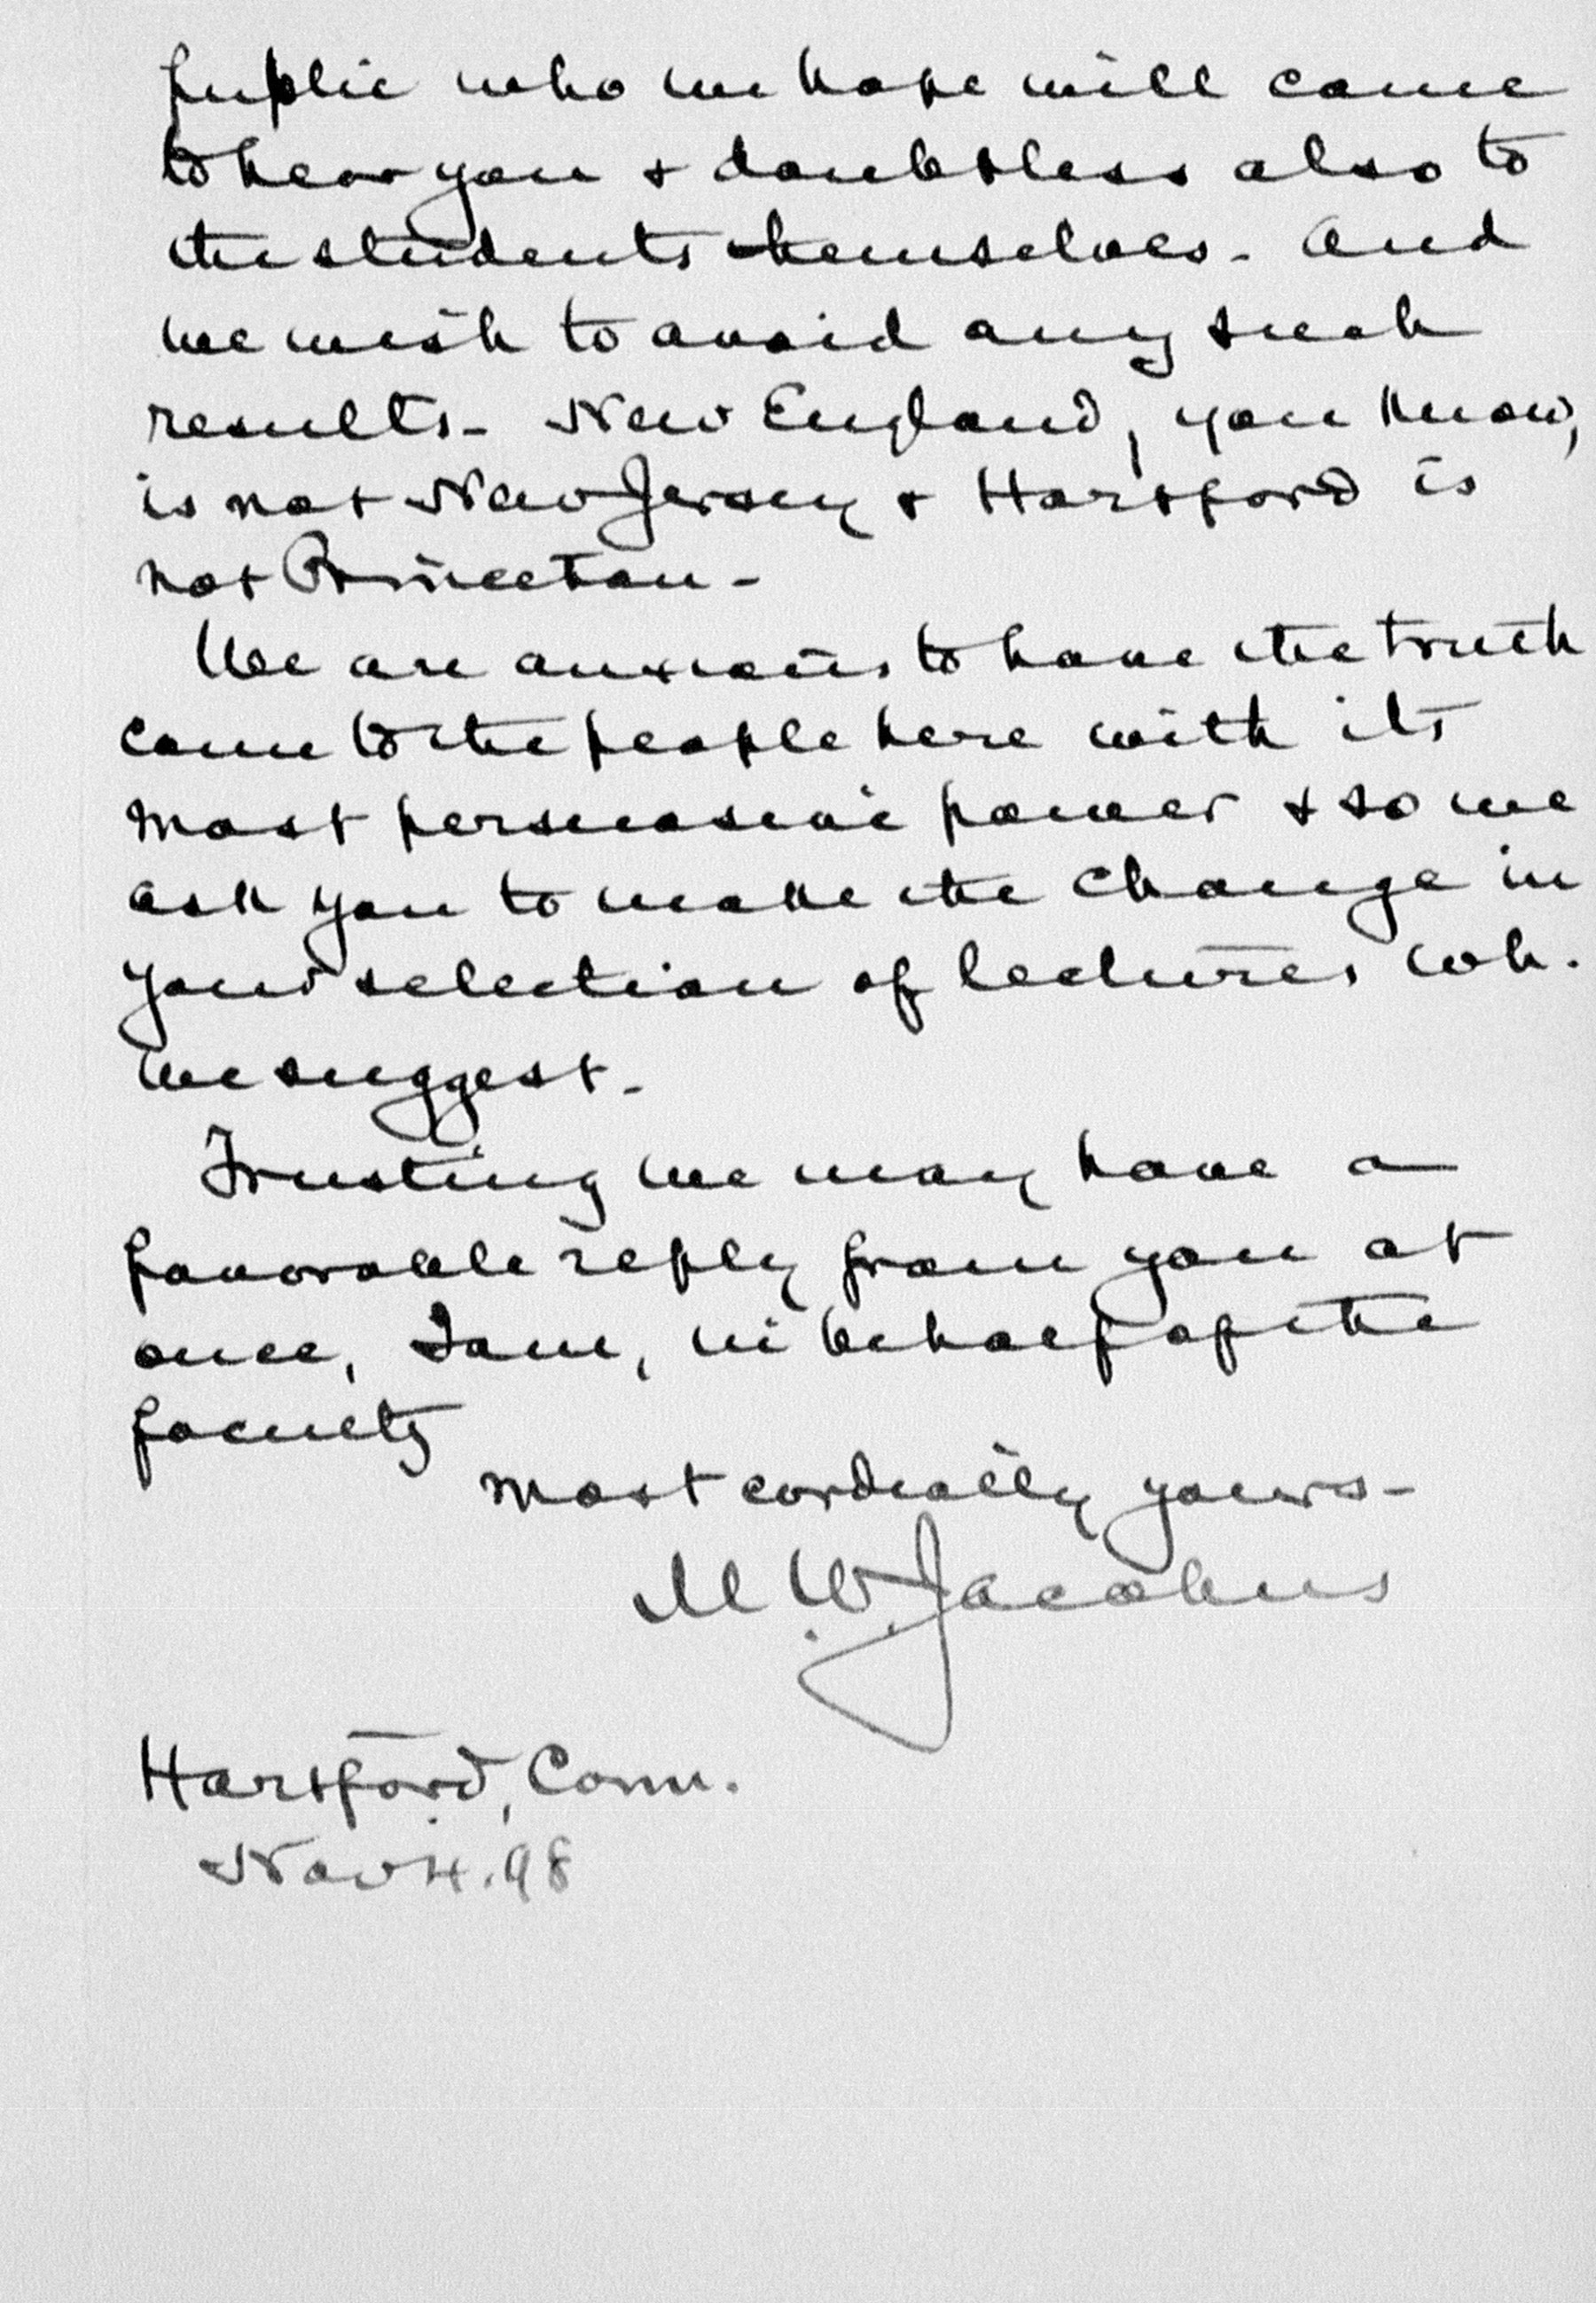 public who we hope will come
to hear you & doubtless also to
the students themselves. And
we wish to avoid any such
results. New England, you know,
is not New Jersey & Hartford is
not Princeton.
We are anxious to have the truth
come to the people here with its
most persuasive power & so we
ask you to make the change in
your selection of lectures wh.
we suggest.
Trusting we may have a
favorable reply from you at
once, I am, in behalf of the
faculty
Most cordially yours.
M. W. Jacobus
Hartford, Conn.
Nov 4. 98